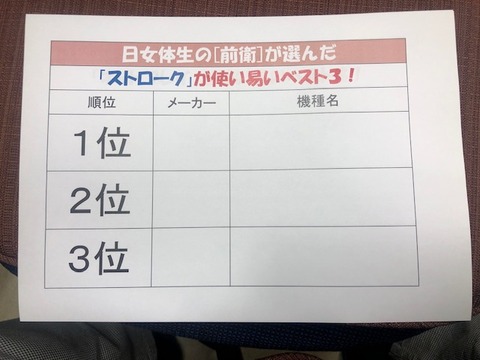 日女体生の［前衛］が選んだ
「ストローク」が使い易いベスト３！
順位 メーカー 機種名
１位
２位
３位